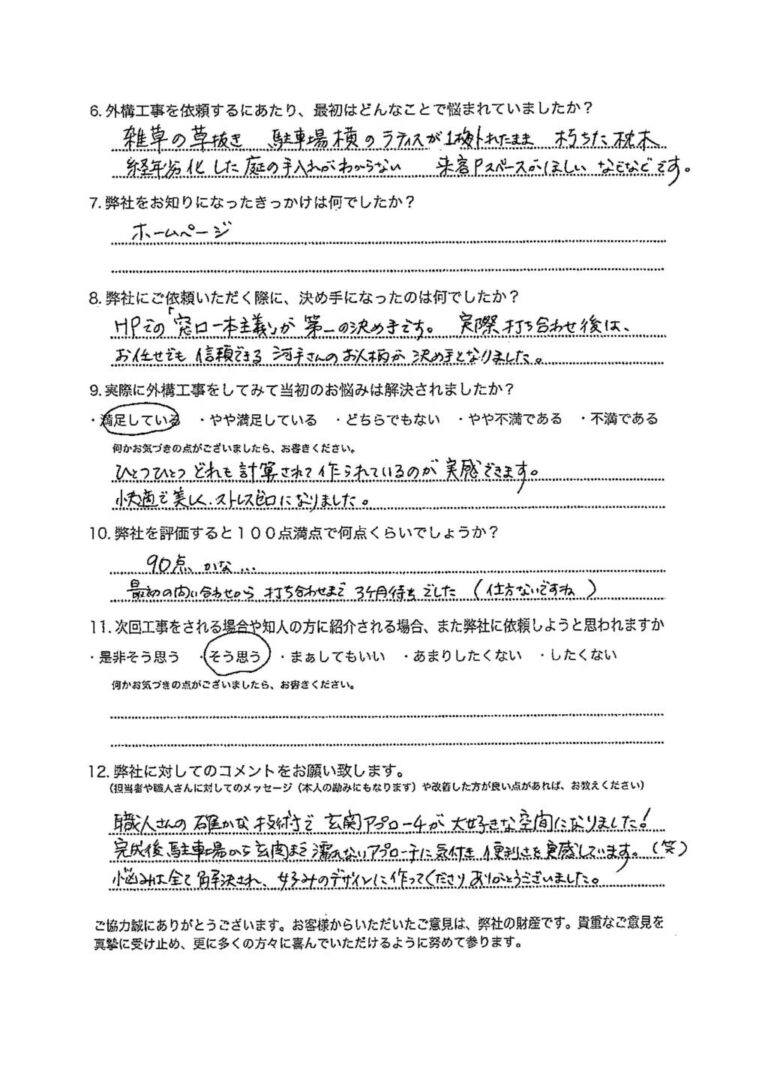 6. 外構工事を依頼するにあたり、最初はどんなことで悩まれていましたか？
雑草の草抜き　駐車場横のラティスが1枚外れたまま　朽ちた枕木
経年劣化した庭の手入れがわからない　来客Pスペースがほしい などなどです。
7. 弊社をお知りになったきっかけは何でしたか？
ホームページ
8. 弊社にご依頼いただく際に、決め手になったのは何でしたか？
HPでの「窓口一本主義」が 第一の決め手です。 実際打ち合わせ後は、
お任せでも 信頼できる 河手さんのお人柄が 決め手となりました。
9. 実際に外構工事をしてみて当初のお悩みは解決されましたか？
・満足している　・やや満足している　・どちらでもない　・やや不満である　・不満である
何かお気づきの点がございましたら、お書きください。
ひとつひとつ どれも計算されて作られているのが 実感できます。
快適で美しく、ストレスゼロになりました。
10. 弊社を評価すると１００点満点で何点くらいでしょうか？
90点 かな...
最初の問い合わせから 打ち合わせまで 3ヶ月待ちでした （仕方ないですね）
11. 次回工事をされる場合や知人の方に紹介される場合、また弊社に依頼しようと思われますか
・是非そう思う　・そう思う　・まぁしてもいい　・あまりしたくない　・したくない
何かお気づきの点がございましたら、お書きください。
12. 弊社に対してのコメントをお願い致します。
（担当者や職人さんに対してのメッセージ（本人の励みにもなります）や改善した方が良い点があれば、お教えください）
職人さんの 確かな 技術で 玄関アプローチが 大好きな空間になりました！
完成後 駐車場から玄関まで 濡れないアプローチに気付き 便利さを実感しています。（笑）
悩みは全て解決され、好みのデザインに作ってくださりありがとうございました。
ご協力誠にありがとうございます。お客様からいただいたご意見は、弊社の財産です。貴重なご意見を
真摯に受け止め、更に多くの方々に喜んでいただけるように努めて参ります。